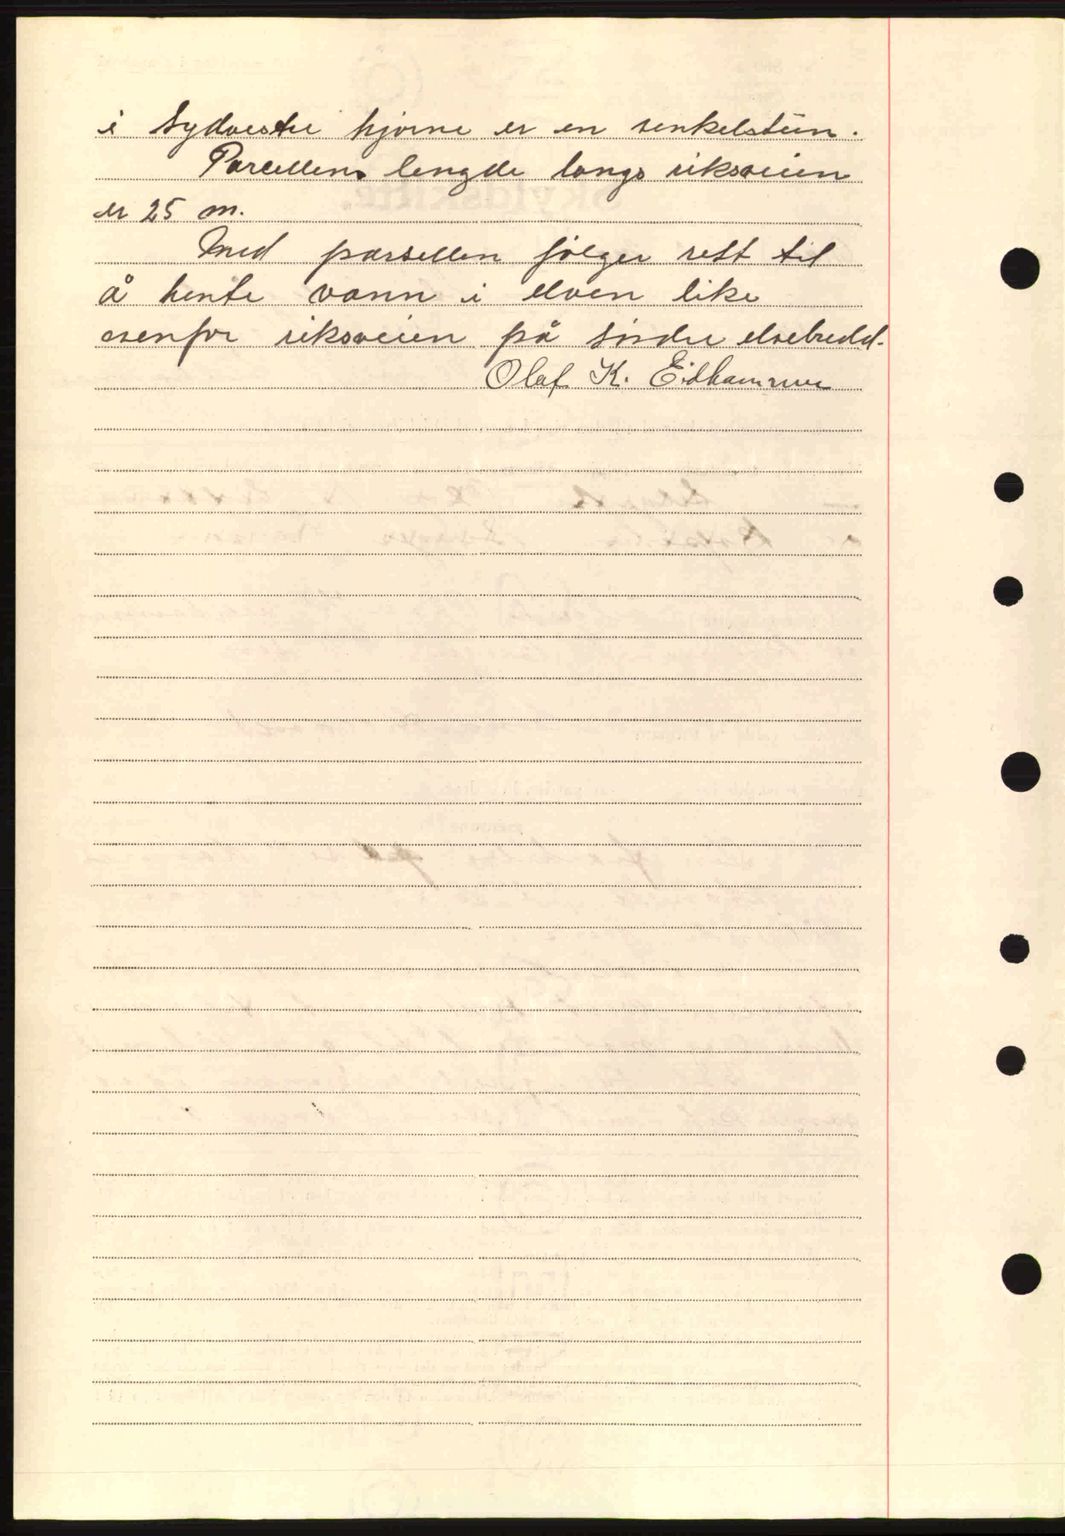 i Sydvestre hjørne er en venkelstein.
Parcellens lengde langs riksveien
er 25 m.
Med parsellen følger rett til
å hente vann i elven like
ovenfor riksveien på søndre elvebredd.
Olaf K. Eidhammer